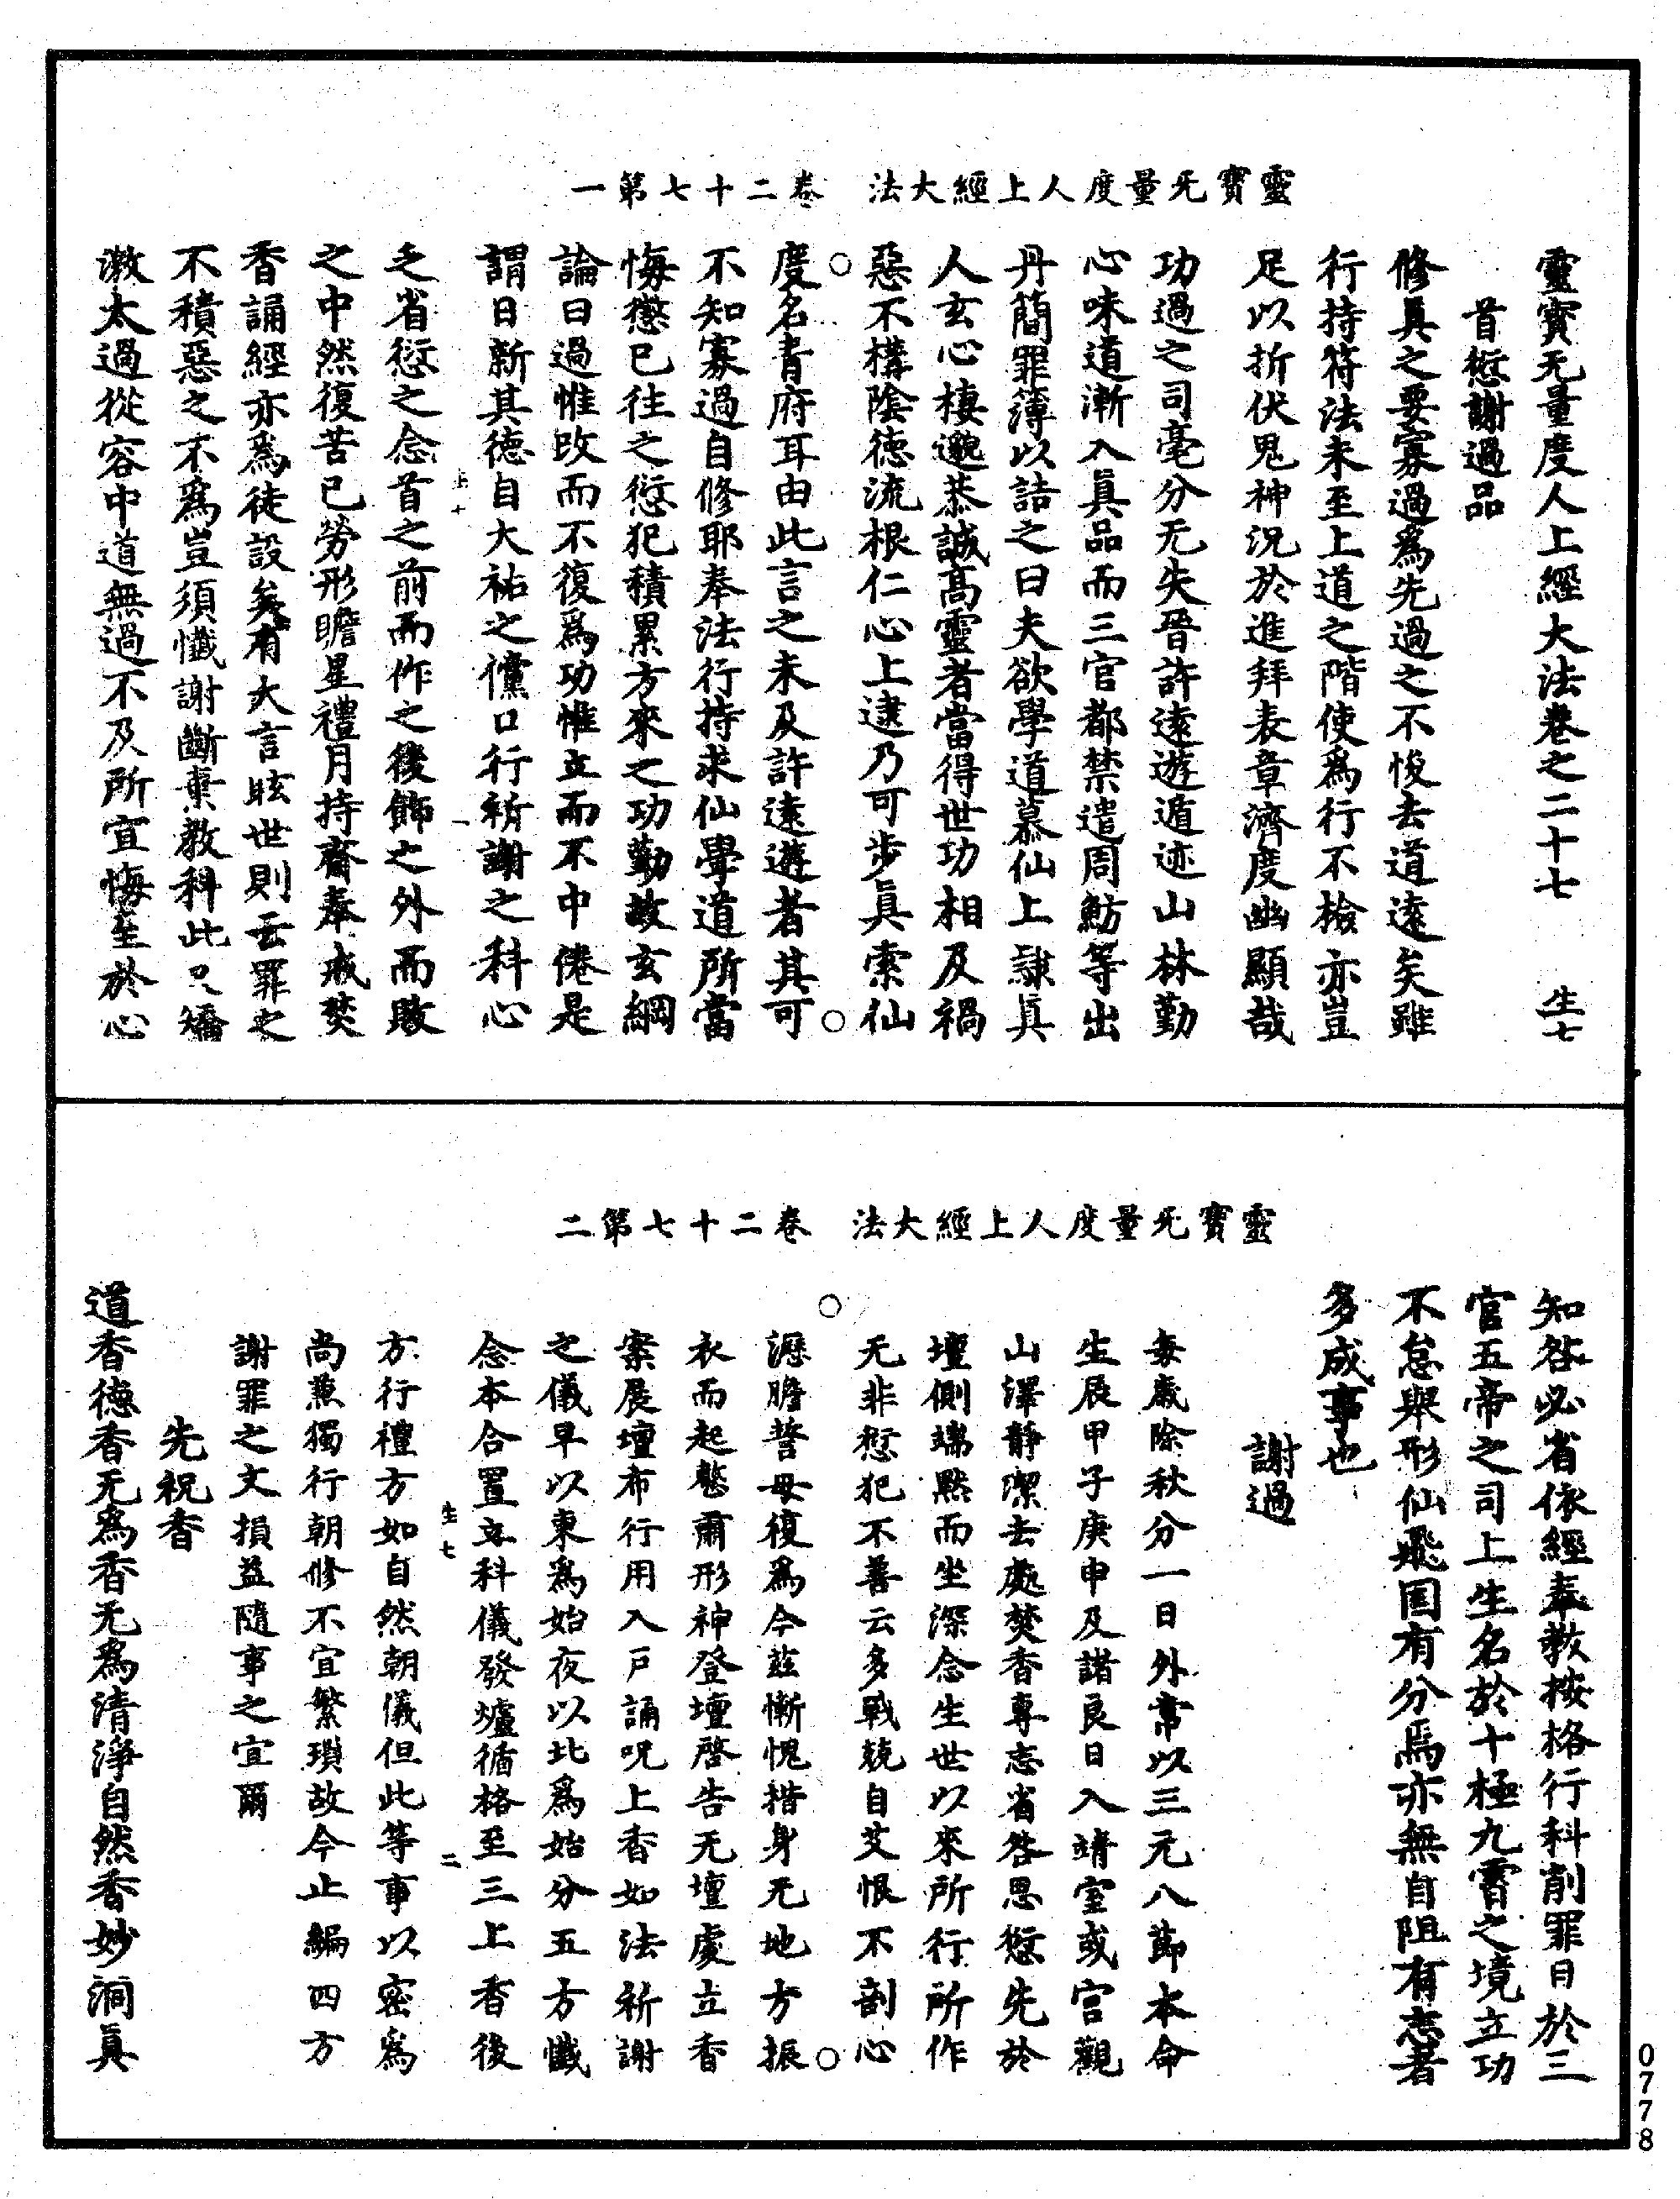 靈寶无量度人上經大法　卷二十七第一
靈寶无量度人上經大法卷之二十七　生七
首愆謝過品
修真之要寡過爲先過之不悛去道遠矣雖
行持符法未至上道之階使爲行不檢亦豈
足以折伏鬼神況於進拜表章濟度幽顯哉
功過之司毫分无失晉許遠遊遁迹山林勤
心味道漸入真品而三官都禁遣周魴等出
丹簡罪簿以詰之曰夫欲學道慕仙上隷真
人玄心棲邈恭誠高靈者當得世功相及禍
惡不構陰德流根仁心上逮乃可步真索仙
度名青府耳由此言之未及許遠遊者其可
不知寡過自修耶奉法行持求仙學道所當
悔懲已往之愆犯積累方來之功勤故玄綱
論曰過惟改而不復爲功惟立而不中倦是
謂日新其德自大祐之儻口行祈謝之科心
乏省愆之念首之前而作之後飾之外而敗
之中然復苦已勞形瞻星禮月持齋奉戒焚
香誦經亦爲徒設矣有大言眩世則云罪之
不積惡之不爲豈須懺謝斷棄教科此又矯
激太過從容中道無過不及所宜悔至於心
靈寶无量度人上經大法　卷二十七第二
知咎必省依經奉教按格行科削罪目於三
官五帝之司上生名於十極九霄之境立功
不怠舉形仙飛固有分焉亦無自阻有志者
多成事也
謝過
每歲除秋分一日外常以三元八節本命
生辰甲子庚申及諸良日入靖室或宫觀
山澤靜潔去處焚香專志省咎思愆先於
壇側端默而坐深念生世以來所行所作
无非愆犯不善云多戰兢自艾恨不剖心
瀝膽誓毋復爲今茲慚愧揩身无地方振
衣而起愨爾形神登壇啓告无壇處立香
案展壇布行用入戶誦呪上香如法祈謝
之儀早以東爲始夜以北爲始分五方懺
念本合置立科儀發爐循格至三上香後
方行禮方如自然朝儀但此等事以密爲
尚兼獨行朝修不宜繁瑣故今止編四方
謝罪之文損益隨事之宜爾
先祝香
道香德香无爲香无爲清淨自然香妙洞真
0778